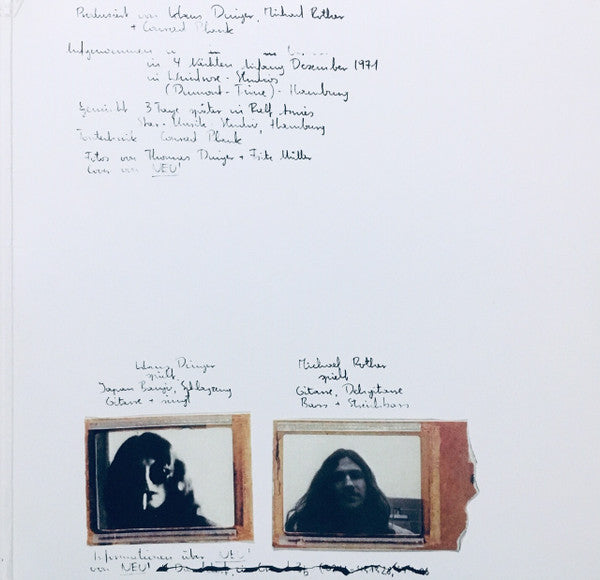 Produziert von Klaus Dinger, Michael Rother
+ Conrad Plank
Aufgenommen
in 4 Nächten Anfang Dezember 1971
in Windrose-Studios
(Dumont-Time)-Hamburg
Gemischt 3 Tage später in Ralf Arnies
Star-Musik-Studio, Hamburg
Tontechnik Conrad Plank
Fotos von Thomas Dinger + Fritz Müller
Cover von NEU!
Klaus Dinger
spielt
Japan Banjo, Schlagzeug
Gitarre + singt
Michael Rother
spielt
Gitarre, Dehgitarre
Bass + Streichbass
Informationen über NEU!
von NEU!